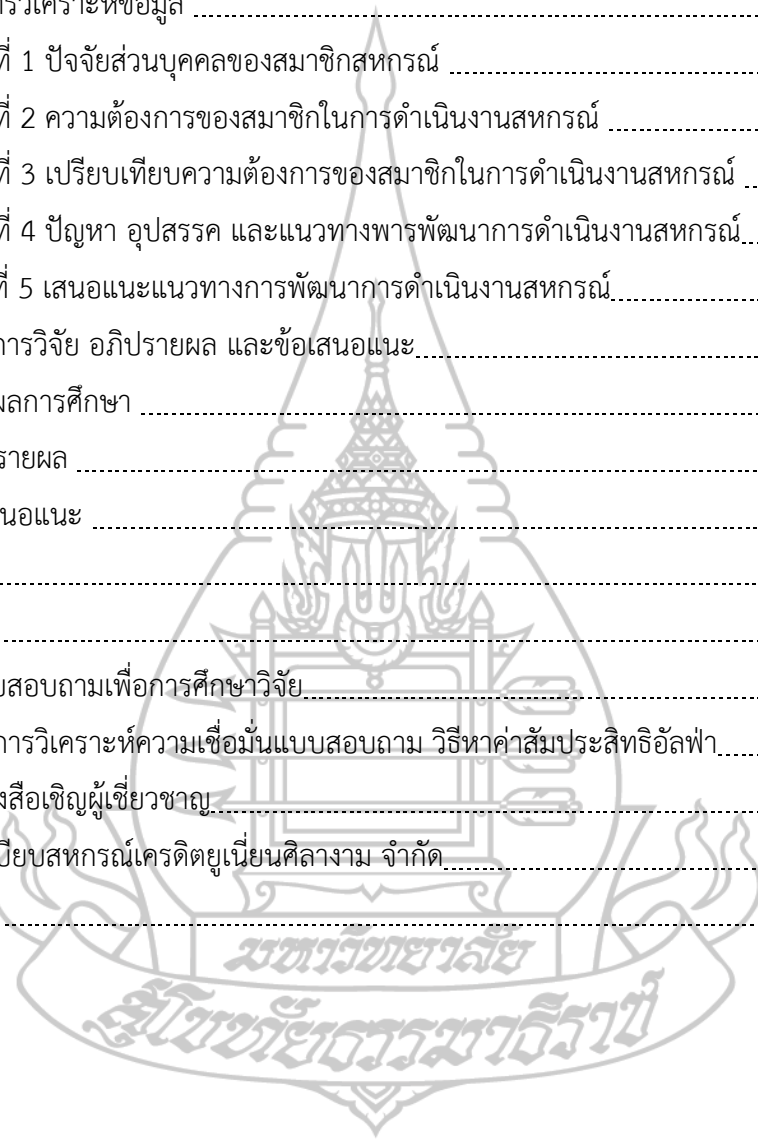 การวิเคราะห์ข้อมูล
ที่ 1 ปัจจัยส่วนบุคคลของสมาชิกสหกรณ์
ที่ 2 ความต้องการของสมาชิกในการดำเนินงานสหกรณ์
ที่ 3 เปรียบเทียบความต้องการของสมาชิกในการดำเนินงานสหกรณ์
ที่ 4 ปัญหา อุปสรรค และแนวทางพารพัฒนาการดำเนินงานสหกรณ์
ที่ 5 เสนอแนะแนวทางการพัฒนาการดำเนินงานสหกรณ์
การวิจัย อภิปรายผล และข้อเสนอแนะ
ผลการศึกษา
รายผล
สนอแนะ
บสอบถามเพื่อการศึกษาวิจัย
การวิเคราะห์ความเชื่อมั่นแบบสอบถาม วิธีหาค่าสัมประสิทธิอัลฟ่า
งสือเชิญผู้เชี่ยวชาญ
เบียบสหกรณ์เครดิตยูเนี่ยนศิลางาม จำกัด
มหาวิทยาลัย
สุโขทัยธรรมาธิราช